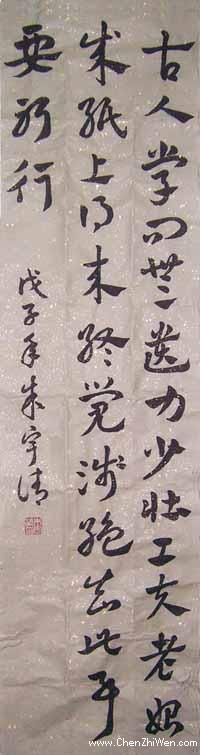 古人学问無遗力少壮工夫老始
成纸上得来终觉浅绝知此事
要躬行
戊子年朱宇清
www.ChenZhiWen.com